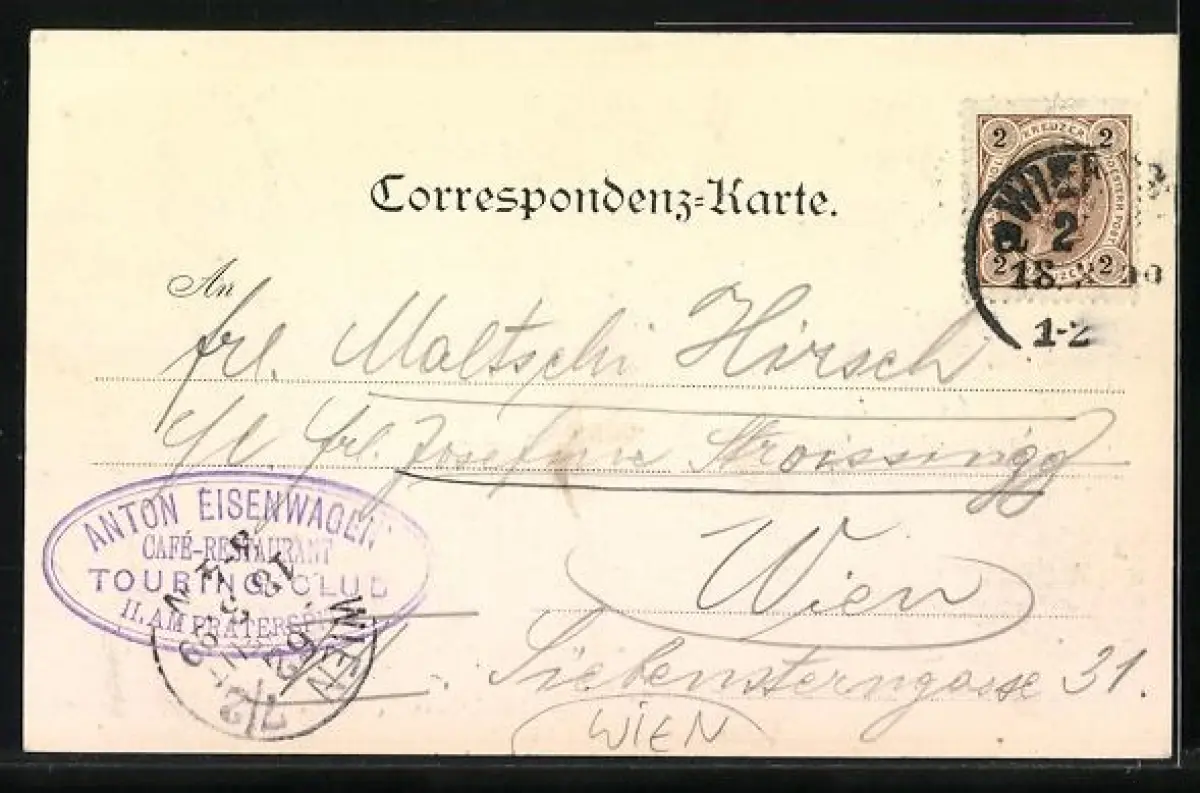 Correspondenz-Karte.
2 KREUZER 2
2 2
WIEN
2
18.
1-2
An
frl. Maltschi Hirsch
frl. Josefine Stroissnigg
Wien
Siebensterngasse 31.
WIEN
ANTON EISENWAGEN
CAFÉ-RESTAURANT
TOURING-CLUB
II. AM PRATERSP
WIEN
7/2